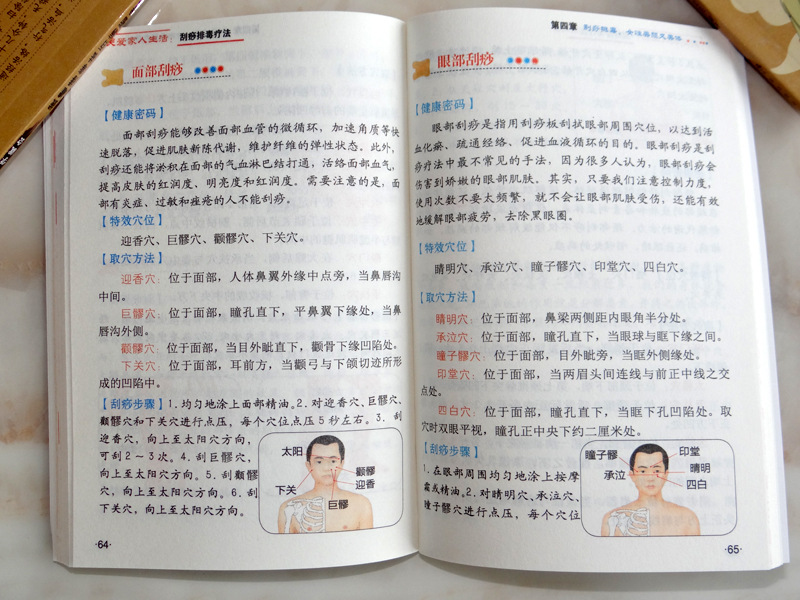 爱家人生活：刮痧排毒疗法
面部刮痧
【健康密码】
面部刮痧能够改善面部血管的微循环，加速角质等快
速脱落，促进肌肤新陈代谢，维护纤维的弹性状态。此外，
刮痧还能将淤积在面部的气血淋巴结打通，活络面部血气，
提高皮肤的红润度、明亮度和红润度。需要注意的是，面
部有炎症、过敏和痤疮的人不能刮痧。
【特效穴位】
迎香穴、巨髎穴、颧髎穴、下关穴。
【取穴方法】
迎香穴：位于面部，人体鼻翼外缘中点旁，当鼻唇沟
中间。
巨髎穴：位于面部，瞳孔直下，平鼻翼下缘处，当鼻
唇沟外侧。
颧髎穴：位于面部，当目外眦直下，颧骨下缘凹陷处。
下关穴：位于面部，耳前方，当颧弓与下颌切迹所形
成的凹陷中。
【刮痧步骤】1.均匀地涂上面部精油。2.对迎香穴、巨髎穴、
颧髎穴和下关穴进行点压，每个穴位点压5秒左右。3.刮
迎香穴，向上至太阳穴方向，
可刮2～3次。4.刮巨髎穴，
向上至太阳穴方向。5.刮颧髎
穴，向上至太阳穴方向。6.刮
下关穴，向上至太阳穴方向。
太阳
颧髎
迎香
下关
巨髎
·64·
第四章 刮痧祛毒，女性易容又养体
眼部刮痧
【健康密码】
眼部刮痧是指用刮痧板刮拭眼部周围穴位，以达到活
血化瘀、疏通经络、促进血液循环的目的。眼部刮痧是刮
痧疗法中最不常见的手法，因为很多人认为，眼部刮痧会
伤害到娇嫩的眼部肌肤。其实，只要我们注意控制力度，
使用次数不要太频繁，就不会让眼部肌肤受伤，还能有效
地缓解眼部疲劳，去除黑眼圈。
【特效穴位】
睛明穴、承泣穴、瞳子髎穴、印堂穴、四白穴。
【取穴方法】
睛明穴：位于面部，鼻梁两侧距内眼角半分处。
承泣穴：位于面部，瞳孔直下，当眼球与眶下缘之间。
瞳子髎穴：位于面部，目外眦旁，当眶外侧缘处。
印堂穴：位于面部，当两眉头间连线与前正中线之交
点处。
四白穴：位于面部，瞳孔直下，当眶下孔凹陷处。取
穴时双眼平视，瞳孔正中央下约二厘米处。
【刮痧步骤】
1.在眼部周围均匀地涂上按摩
霜或精油。2.对睛明穴、承泣穴、
瞳子髎穴进行点压，每个穴位
瞳子髎
印堂
承泣
晴明
四白
·65·